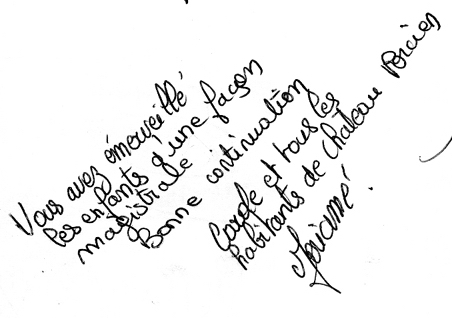 Vous avez émerveillé
les enfants d'une façon
magistrale.
Bonne continuation
Carole et tous les
habitants de Château Porcien